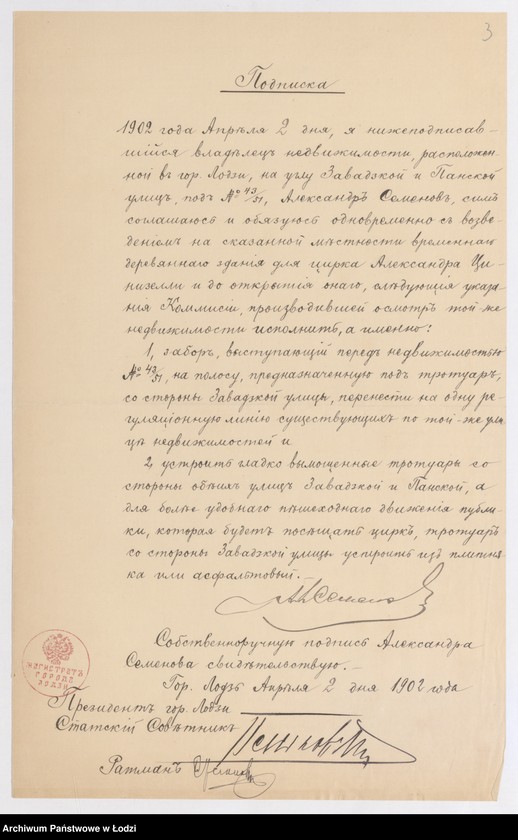 3
Подписка
1902 года Апрѣля 2 дня, я нижеподписав-
шійся владѣлецъ недвижимости, расположен-
ной въ гор. Лодзи, на углу Завадзкой и Панской
улицъ, подъ № 43/51, Александръ Семеновъ, симъ
соглашаюсь и обязуюсь одновременно съ возве-
деніемъ на сказанной мѣстности временнаго
деревяннаго зданія для цирка Александра Чи-
низелли и до открытія онаго, слѣдующія указа-
нія Коммисіи, производившей осмотръ той же
недвижимости исполнить, а именно:
1, заборъ, выступающій передъ недвижимостью
№ 43/51, на полосу, предназначенную подъ тротуаръ,
со стороны Завадзкой улицы, перенести на одну ре-
гуляціонную линію существующихъ по той-же ули
цѣ недвижимостей и
2, устроить гладко вымощенные тротуары со
стороны обѣихъ улицъ Завадзкой и Панской, а
для болѣе удобнаго пѣшеходнаго движенія публи-
ки, которая будетъ посѣщать циркъ, тротуаръ
со стороны Завадзкой улицы устроить изъ плитня-
ка или асфальтовый.-
А Семеновъ
Собственноручную подпись Александра
Семенова свидѣтельствую.-
Гор. Лодзь Апрѣля 2 дня 1902 года
МАГИСТРАТЪ
ГОРОДА
ЛОДЗИ
Президентъ гор. Лодзи
Статскій Совѣтникъ
Ратманъ
Archiwum Państwowe w Łodzi